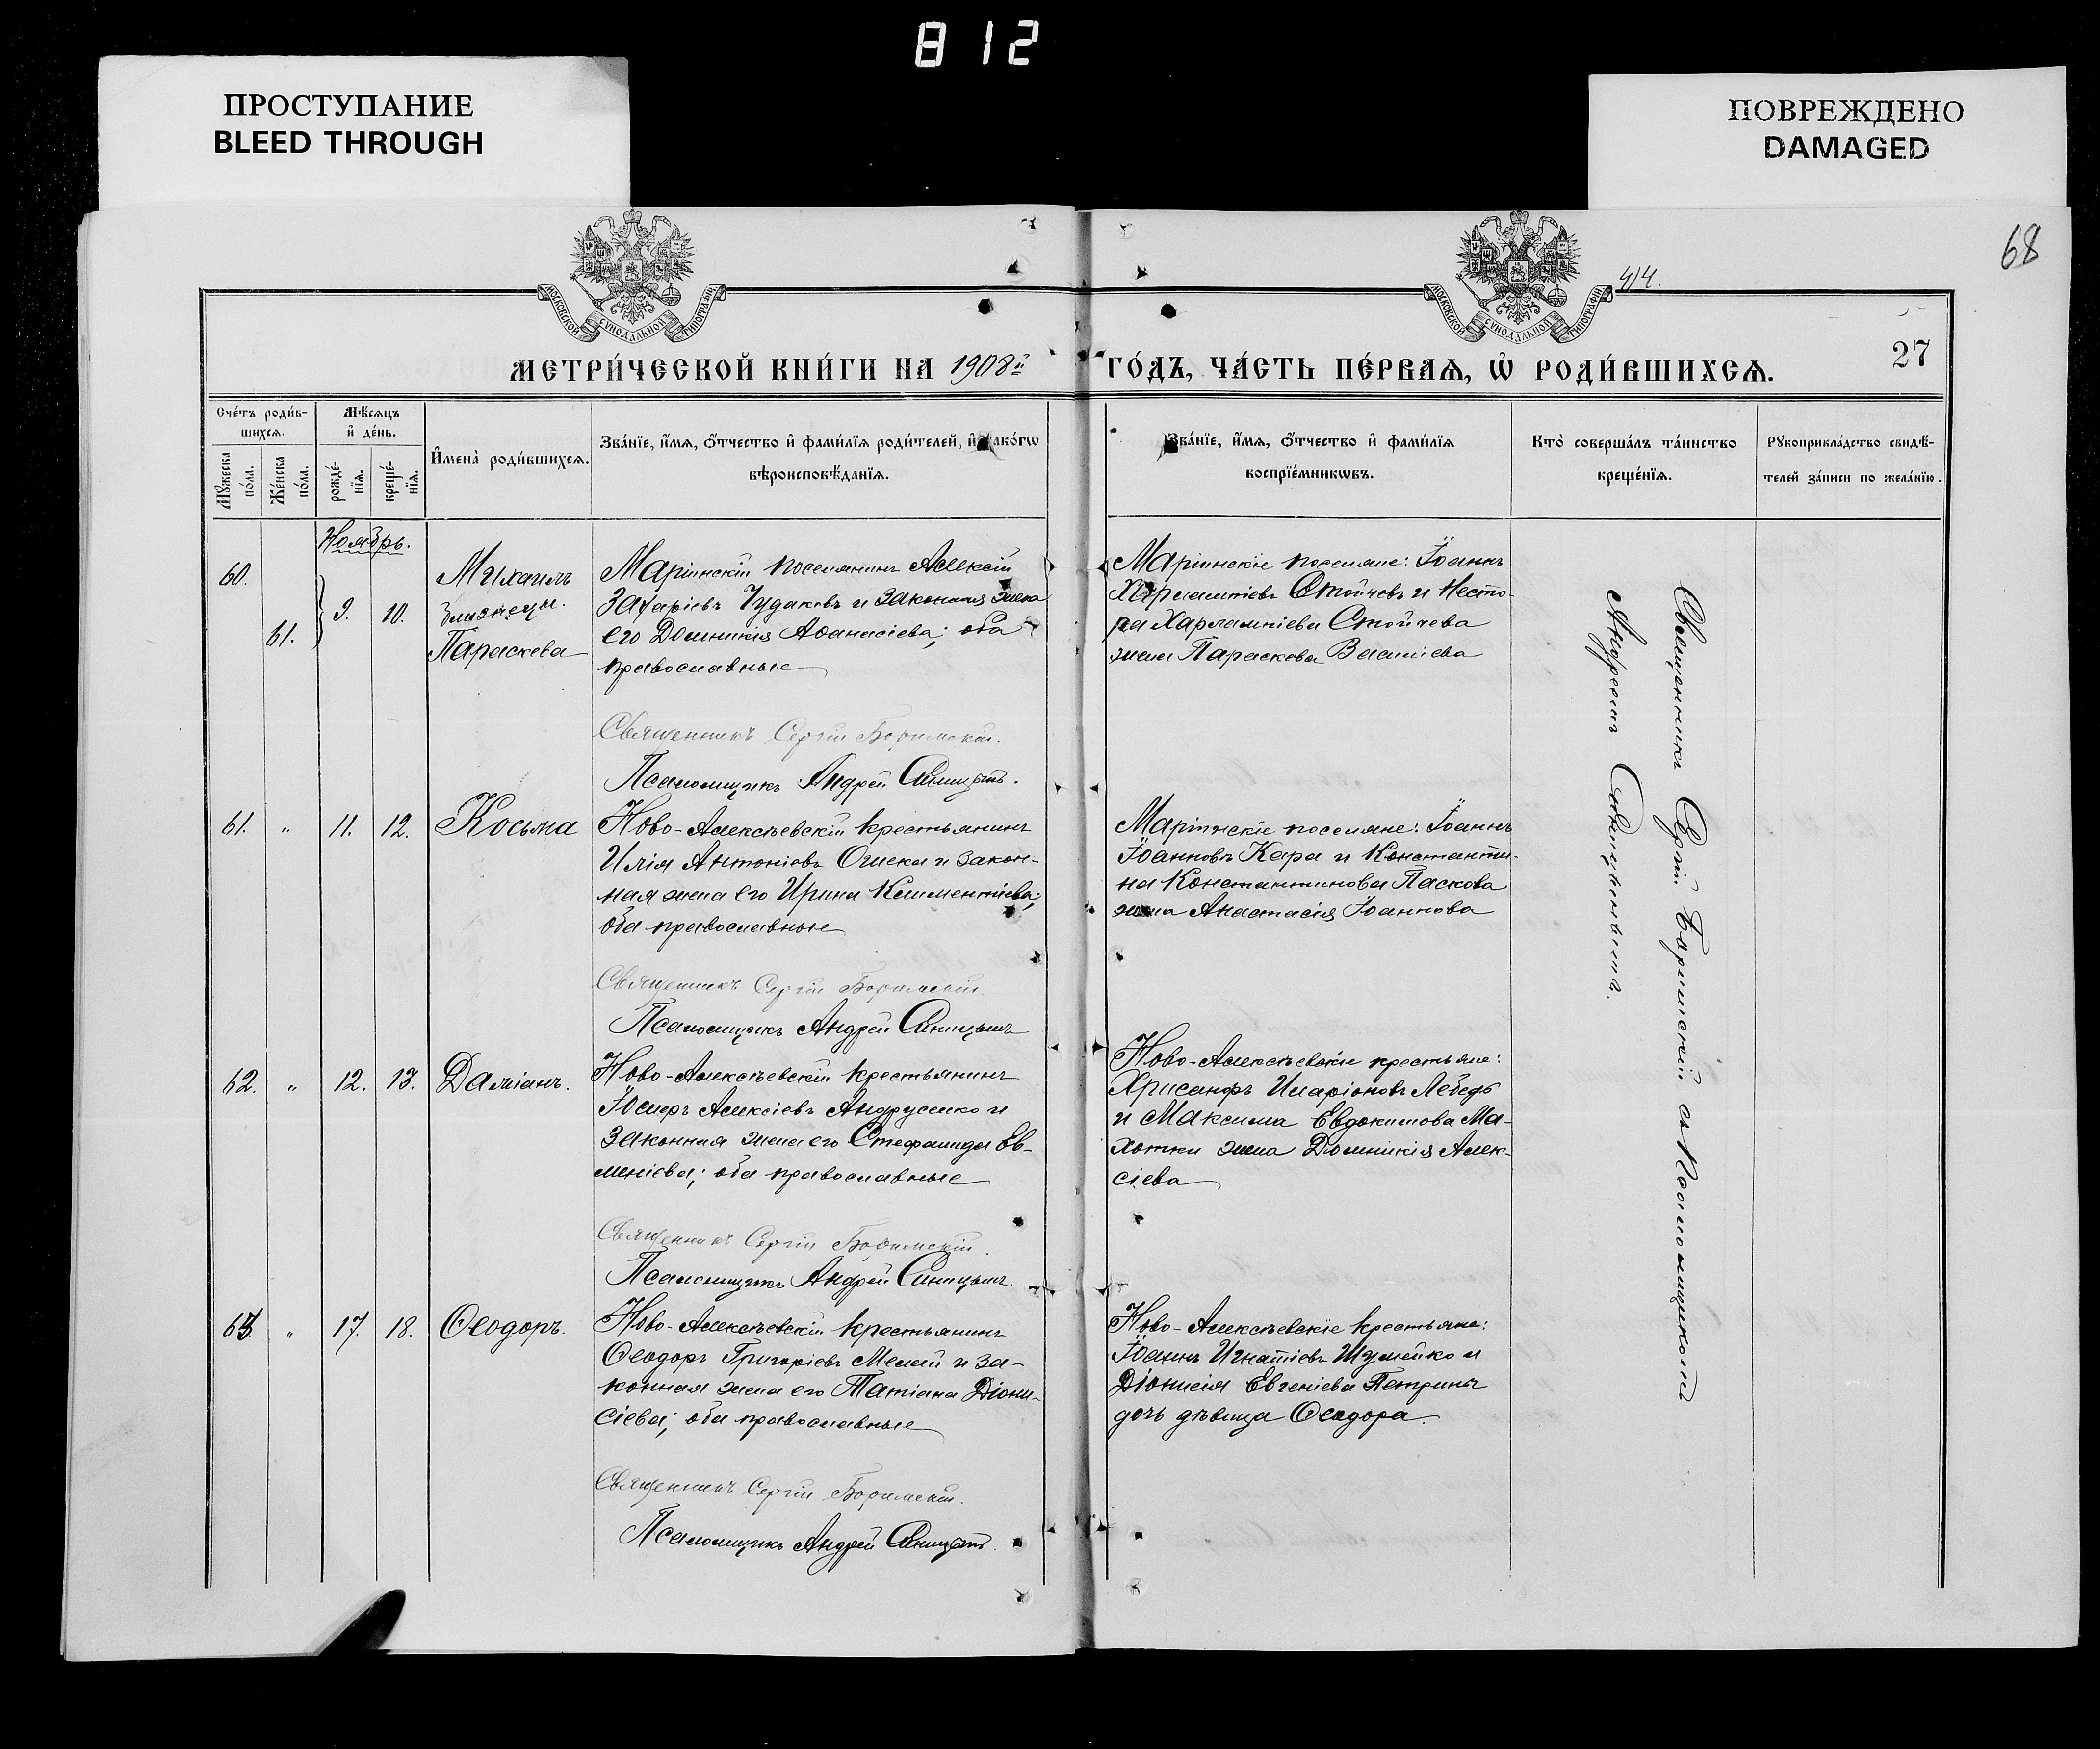 812
ПРОСТУПАНИЕ
BLEED THROUGH
ПОВРЕЖДЕНО
DAMAGED
68
414.
27
МОСКОВСКОЙ СѴНОДАЛЬНОЙ ТИПОГРАФІИ
МОСКОВСКОЙ СѴНОДАЛЬНОЙ ТИПОГРАФІИ
МЕТРИ́ЧЕСКОЙ КНИ́ГИ НА 1908й ГО́ДЪ, ЧА́СТЬ ПЕ́РВАЯ, Ѡ РОДИ́ВШИХСЯ.
Сче́тъ роди́в-
шихся.
Мꙋжеска по́ла.
Же́нска по́ла.
Мѣ́сяцъ
и де́нь.
рожде́-
нїя.
креще́-
нїя.
Имена̀ роди́вшихся.
Зва́нїе, и́мя, о́тчество и фами́лїя роди́телей, и како́гѡ
вѣроисповѣ́данїя.
Зва́нїе, и́мя, о́тчество и фами́лїя
воспрїе́мникѡвъ.
Кто̀ соверша́лъ та́инство
креще́нїя.
Рꙋкоприкла́дство свидѣ́-
телей за́писи по жела́нїю.
Ноябрь.
60.
61.
9.
10.
Михаилъ
близнецы.
Параскева
Маріинскій поселянинъ Алексій
Захаріевъ Чудаковъ и законная жена
его Домникія Аѳанасіева; оба
православные
Священникъ Сергій Боримскій.
Псаломщикъ Андрей Синицынъ.
Маріинскіе поселяне: Іоаннъ
Харлампіевъ Стойчевъ и Несто-
ра Харлампіева Стойчева
жена Параскева Василіева
61. " 11. 12. Косьма
Ново-Алексѣевскій крестьянинъ
Илія Антоніевъ Ошека и закон-
ная жена его Ирина Климентіева;
оба православные
Священникъ Сергій Боримскій.
Псаломщикъ Андрей Синицынъ
Маріинскіе поселяне: Іоаннъ
Іоанновъ Кара и Константи-
на Константинова Паскова
жена Анастасія Іоаннова
62. " 12. 13. Даміанъ.
Ново-Алексѣевскій крестьянинъ
Іосифъ Алексіевъ Андрусенко и
законная жена его Стефанида Ев-
меніева; оба православные
Священникъ Сергій Боримскій.
Псаломщикъ Андрей Синицынъ.
Ново-Алексѣевскіе крестьяне:
Хрисанфъ Иларіоновъ Лебедь
и Максима Евдокимова Ма-
хотки жена Домникія Алек-
сіева
63. " 17. 18. Ѳеодоръ.
Ново-Алексѣевскій крестьянинъ
Ѳеодоръ Григоріевъ Мелай и за-
конная жена его Татіана Діони-
сіева; оба православные
Священникъ Сергій Боримскій.
Псаломщикъ Андрей Синицынъ.
Ново-Алексѣевскіе крестьяне:
Іоаннъ Игнатіевъ Шумейко и
Діонисія Евгеніева Петрина
дочь дѣвица Ѳеодора.
Священникъ Сергій Боримскій съ Псаломщикомъ
Андреемъ Синицынымъ.